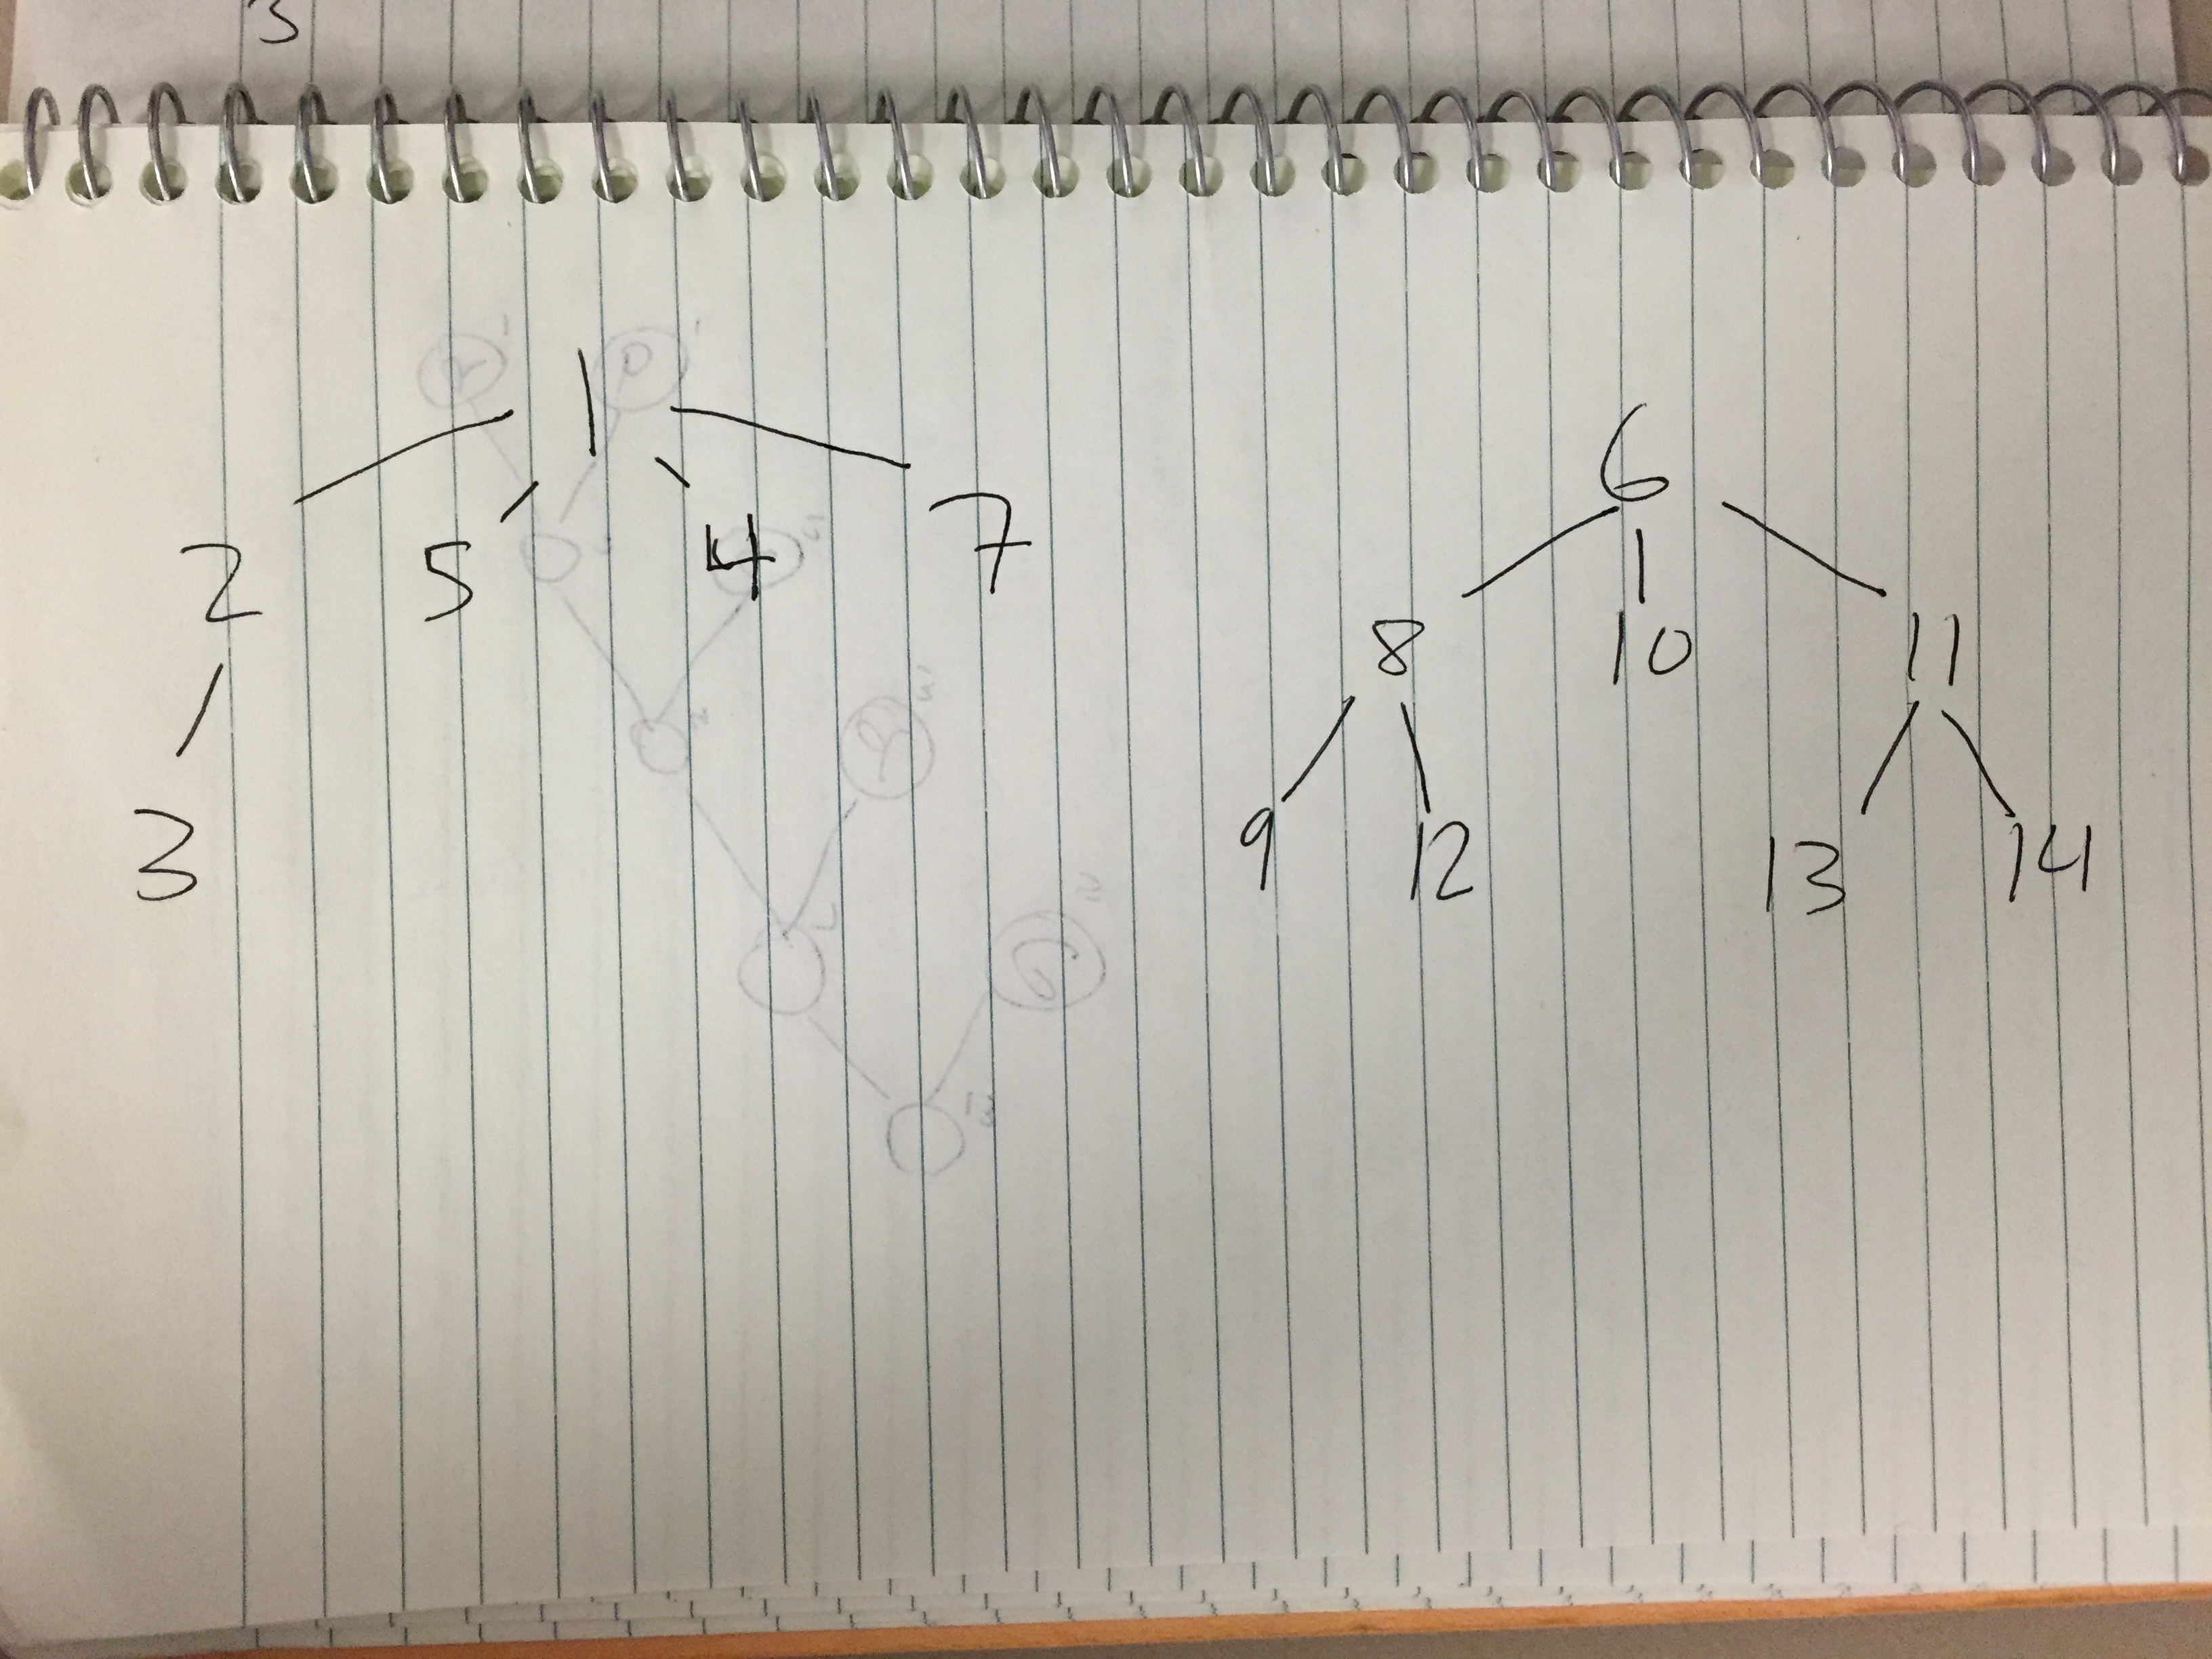 3
1
6
2 5 4 7
8 10 11
3
9 12 13 14